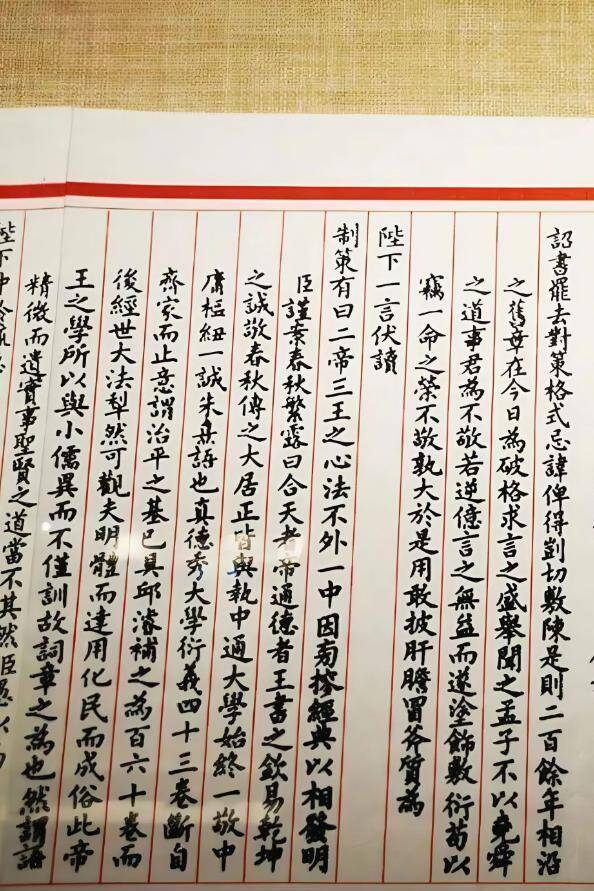 詔書罷去對策格式忌諱俾得剴切敷陳是則二百餘年相沿
之舊弊在今日為破格求言之盛舉聞之孟子不以堯舜
之道事君為不敬若逆億言之無益而遂塗飾敷衍苟以
竊一命之榮不敬孰大於是用敢披肝膽冒斧質為
陛下一言伏讀
制策有曰二帝三王之心法不外一中因旁搜經典以相發明
臣謹案春秋繁露曰合天者帝通德者王書之欽易乾坤
之誠敬春秋傳之大居正皆與執中通大學始終一敬中
庸樞紐一誠朱熹語也真德秀大學衍義四十三卷斷自
齊家而止意謂治平之基已具邱濬補之為百六十卷而
後經世大法犁然可觀夫明體而達用化民而成俗此帝
王之學所以與小儒異而不僅訓故詞章之為也然謂語
精微而遺實事聖賢之道當不其然臣愚以為
陛下